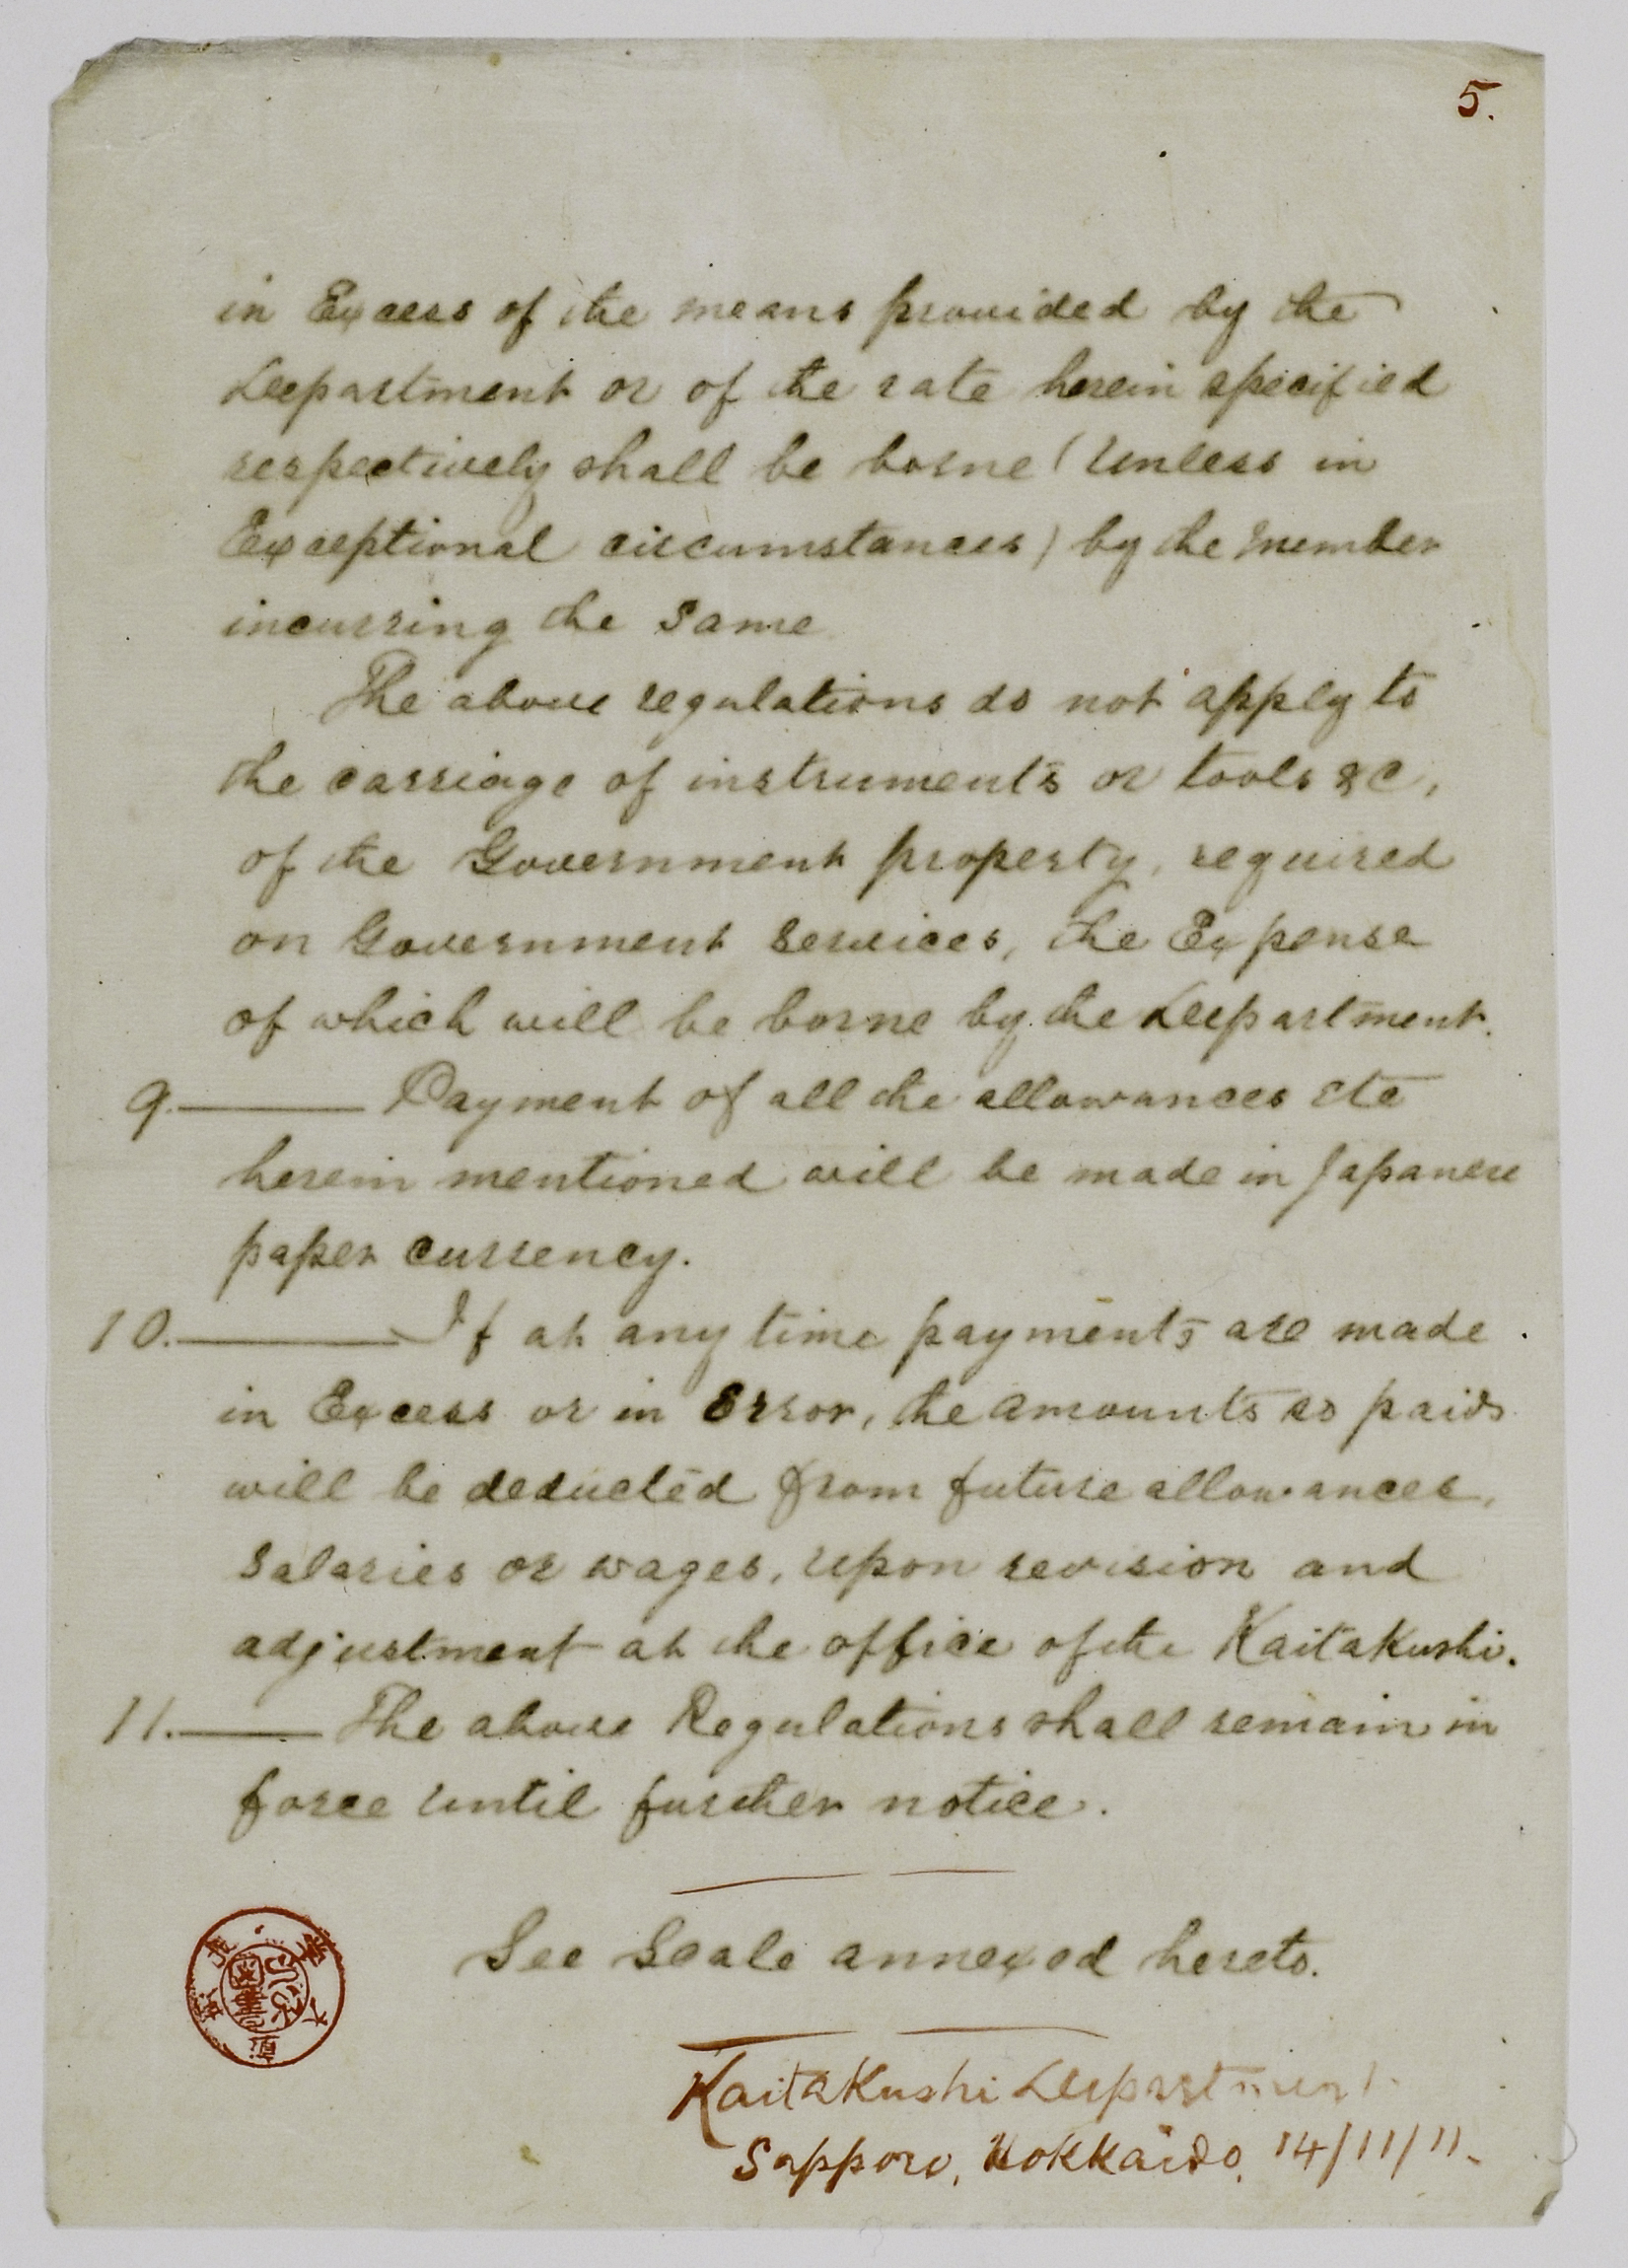 5.
in Excess of the means provided by the
Department or of the rate herein specified
respectively shall be borne (unless in
Exceptional circumstances) by the member
incurring the same
The above regulations do not apply to
the carriage of instruments or tools &c,
of the Government property, required
on Government services, the Expense
of which will be borne by the Department.
9. Payment of all the allowances etc
herein mentioned will be made in Japanese
paper currency.
10. If at any time payments are made
in Excess or in Error, the amounts so paid
will be deducted from future allowances,
salaries or wages, upon revision and
adjustment at the office of the Kaitakushi.
11. The above Regulations shall remain in
force until further notice.
See Scale annexed hereto.
Kaitakushi Department
Sapporo, Hokkaido, 14/11/11.